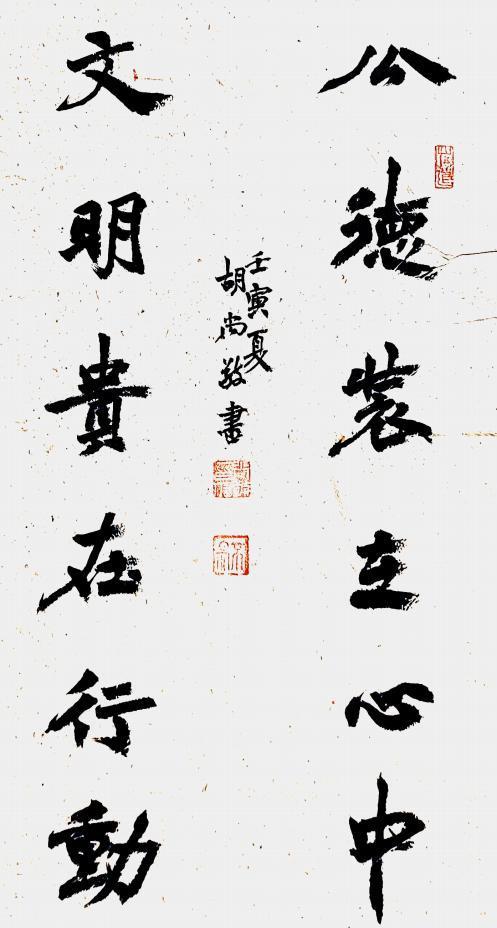 公德装立心中
文明貴在行動
壬寅夏
胡尚敬書